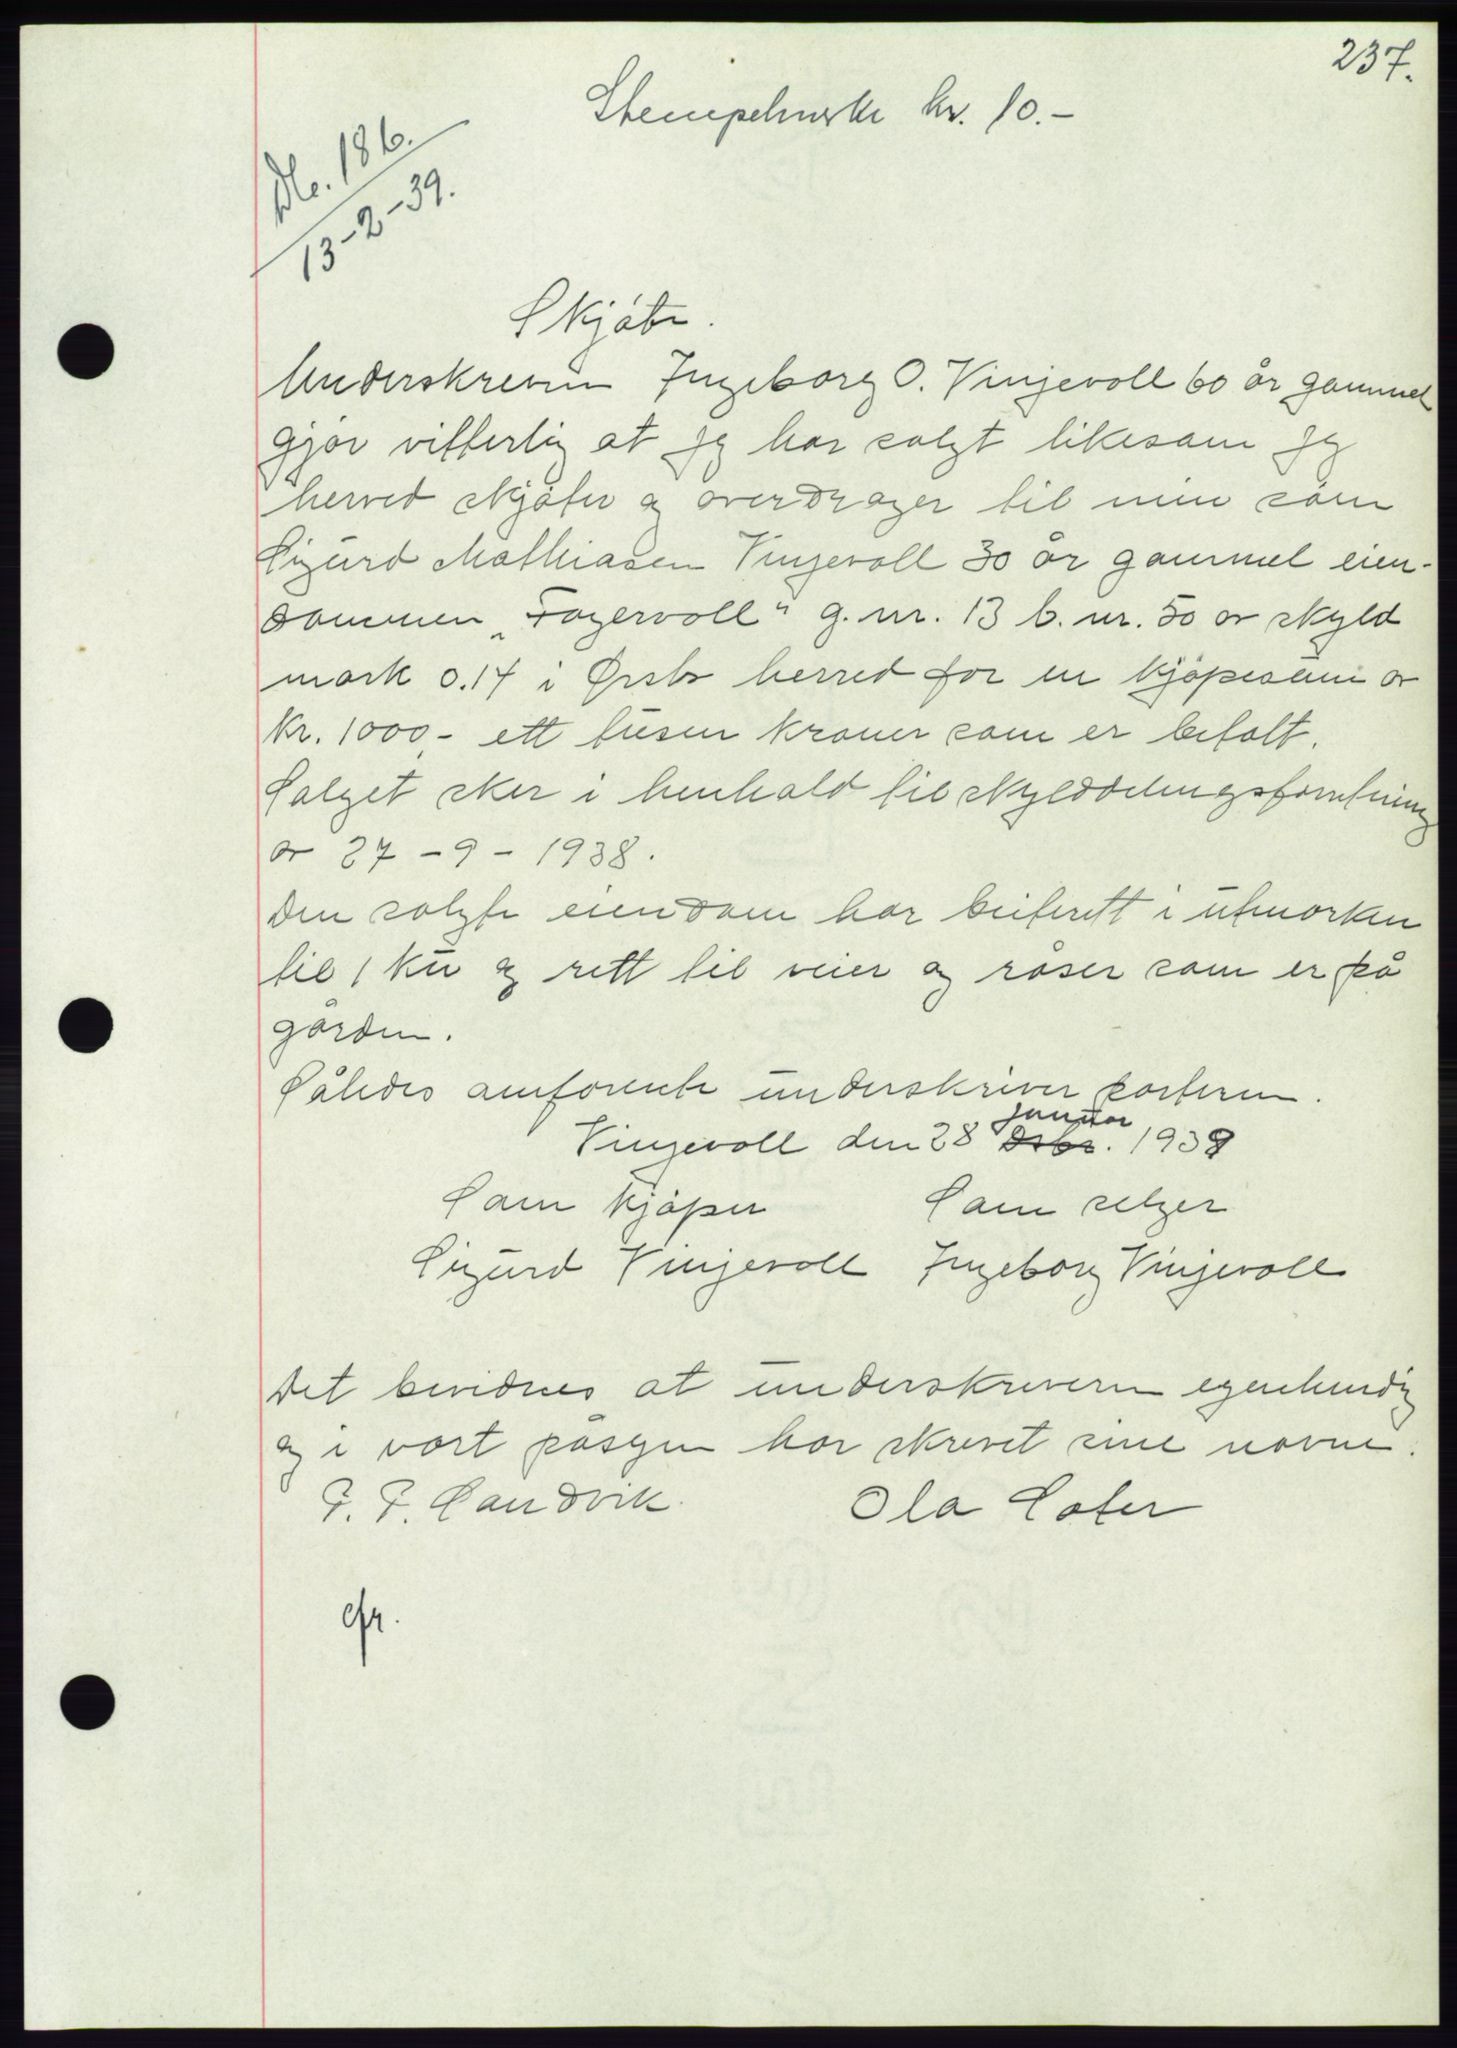 237.
Stempelmerke kr. 10.-
Dbl. 186.
13-2-39.
Skjöte.
Underskreven Ingeborg O. Vinjevoll 60 år gammel
gjör vitterlig at jeg har solgt likesom jeg
herved skjöter og overdrager til min sönn
Sigurd Mathiasen Vinjevoll 30 år gammel eien-
dommen „Fagervoll" g. nr. 13 b. nr. 50 av skyld
mark 0.14 i Ørsta herred for en kjöpesum av
kr. 1000,- ett tusen kroner som er betalt.
Salget sker i henhold til skylddelingsforretning
av 27 - 9 - 1938.
Den solgte eiendom har beiterett i utmarken
til 1 ku og rett til veier og råser som er på
gården.
Således omforente underskriver parterne.
Vinjevoll den 28 Dsbr. januar 1939
Som kjöper Som selger
Sigurd Vinjevoll Ingeborg Vinjevoll
Det bevidnes at underskriverne egenhendig
og i vort påsyn har skrevet sine navne.
P. P. Sandvik. Ola Sater
cfr.